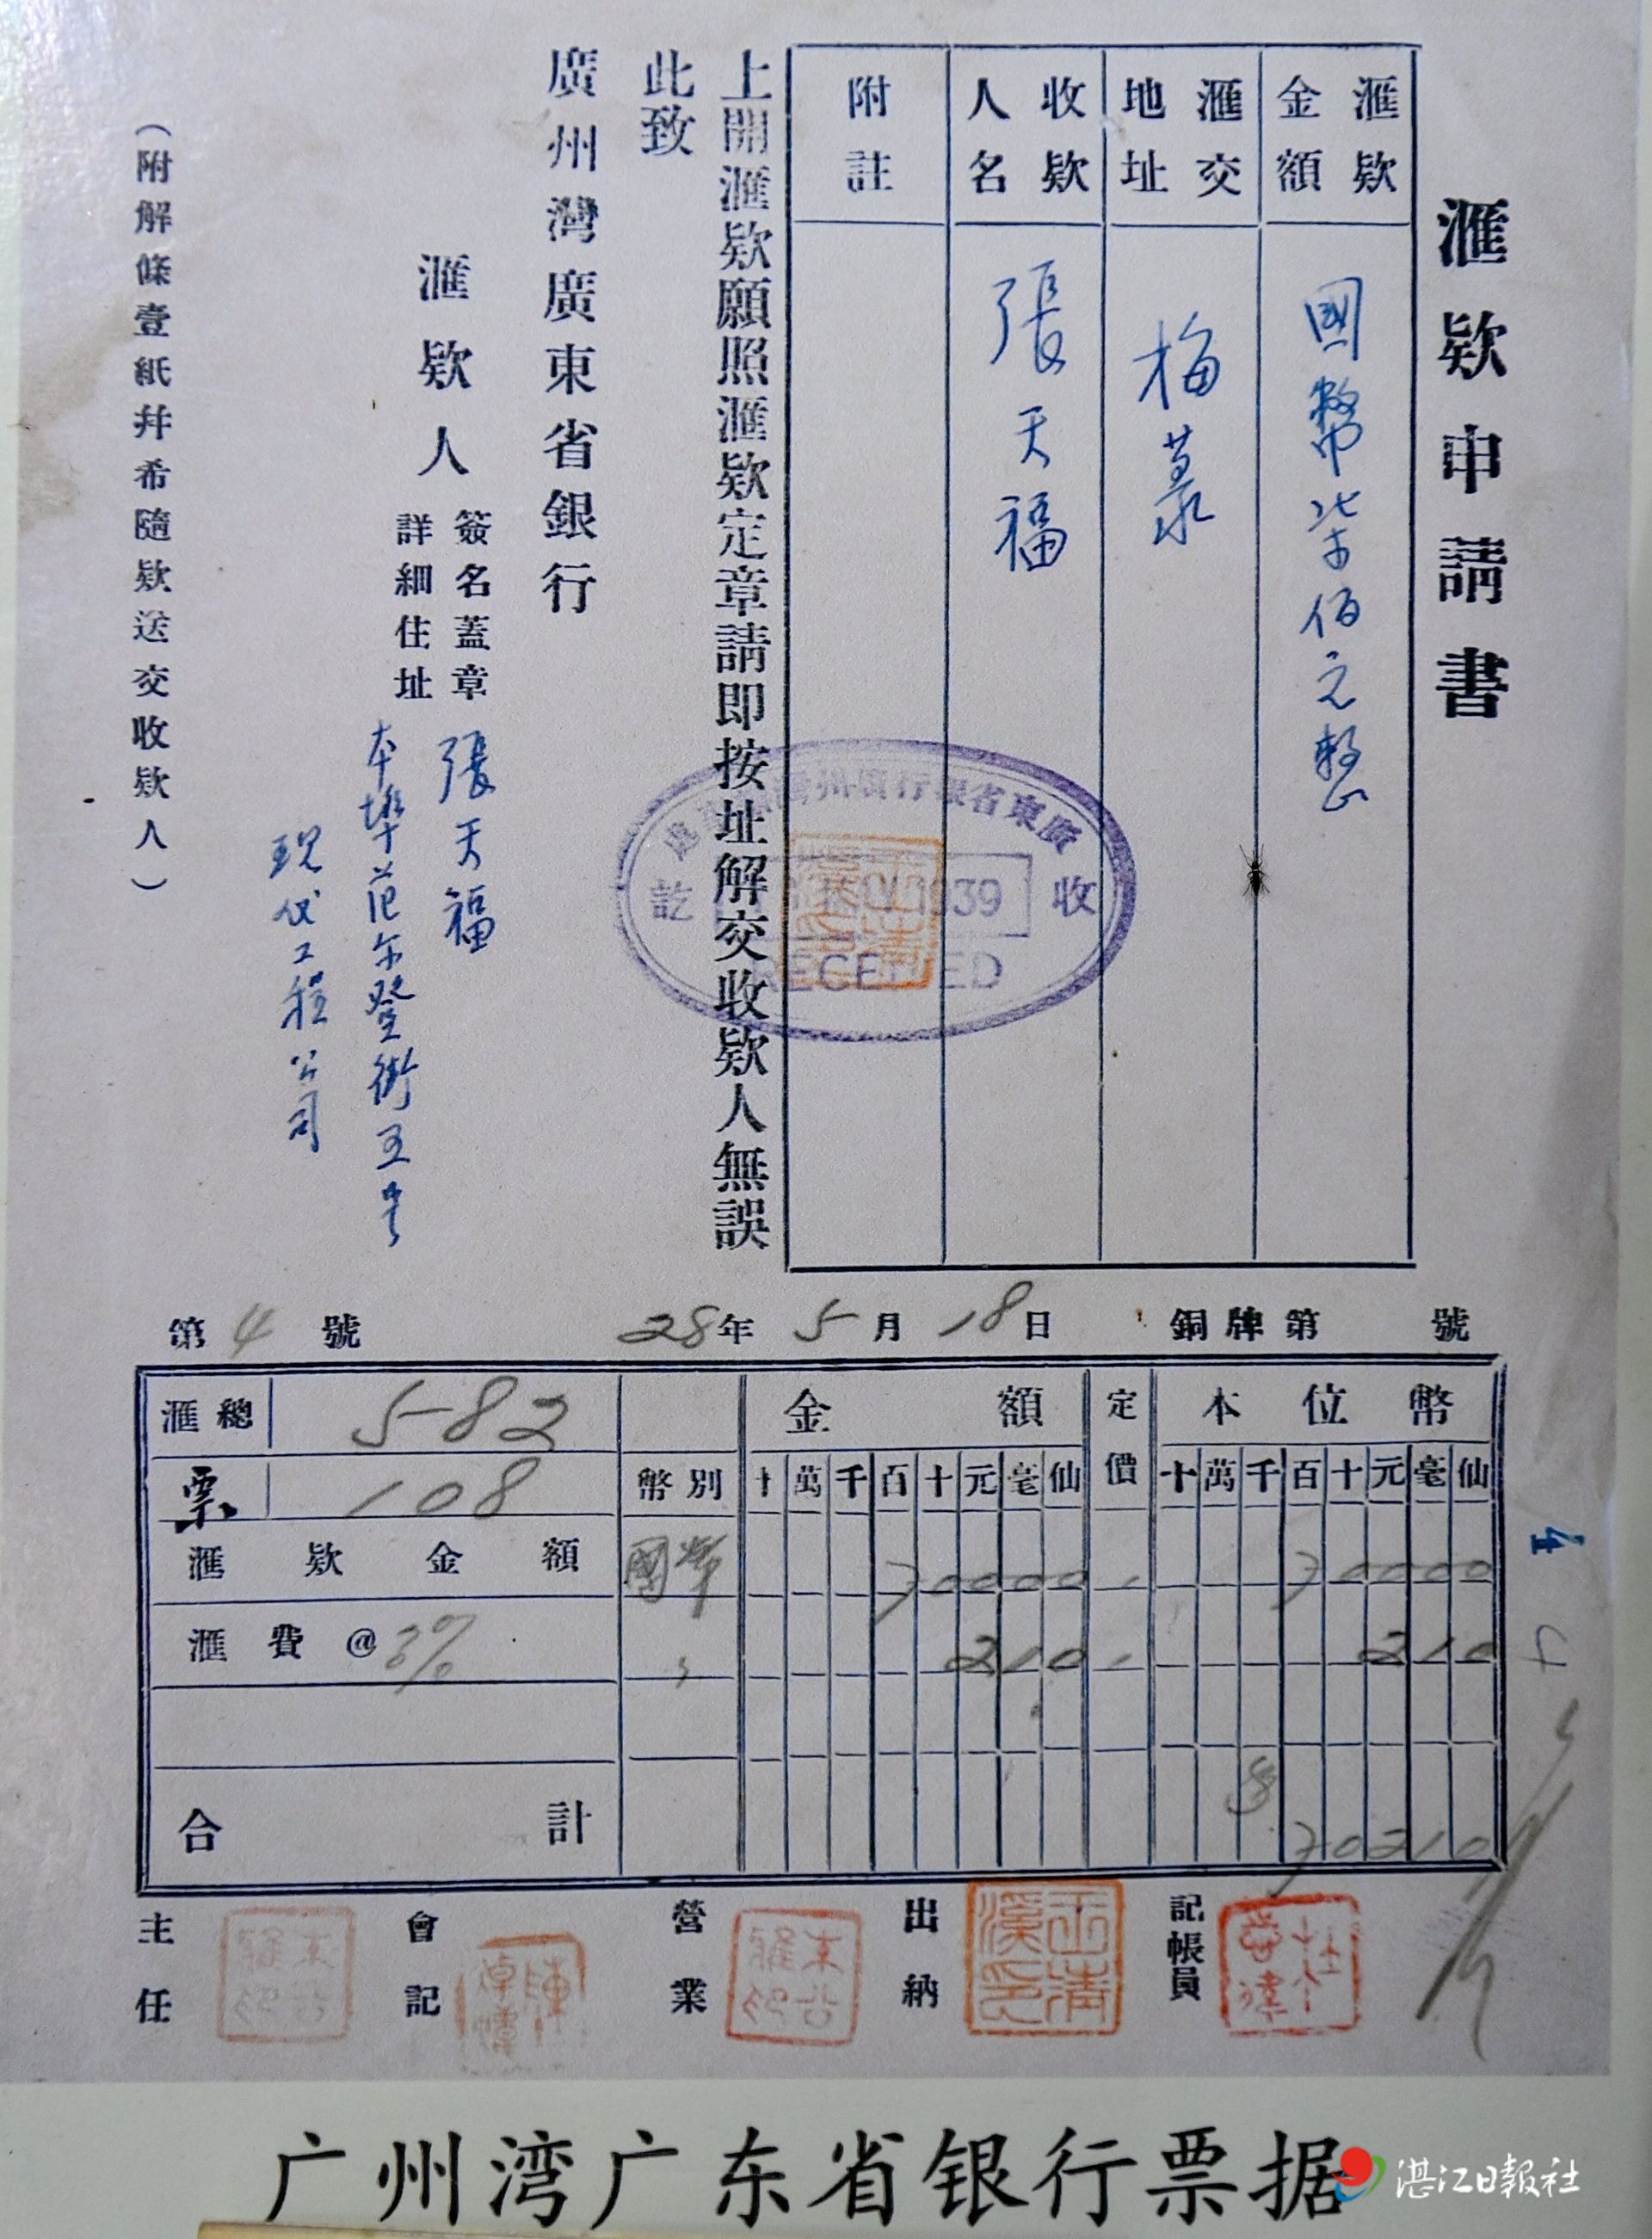 滙欵申請書
滙欵金額
國幣柒佰元整
滙交地址
梅菉
收欵人名
張天福
附註
上開滙欵願照滙欵定章請即按址解交收欵人無誤
此致
廣州灣廣東省銀行
滙欵人
簽名蓋章
張天福
詳細住址
本埠范尔登街五号
現代工程公司
(附解條壹紙幷希隨欵送交收欵人)
收訖
1939
RECEIVED
第4號 28年5月18日 銅牌第 號
滙總 5-82 金額 定價 本位幣
票 108 幣別 十萬千百十元毫仙 十萬千百十元毫仙
滙欵金額 國幣 70000 70000
滙費@ 210 210
合計 70210
主任 會記 營業 出納 記帳員
广州湾广东省银行票据
湛江日報社